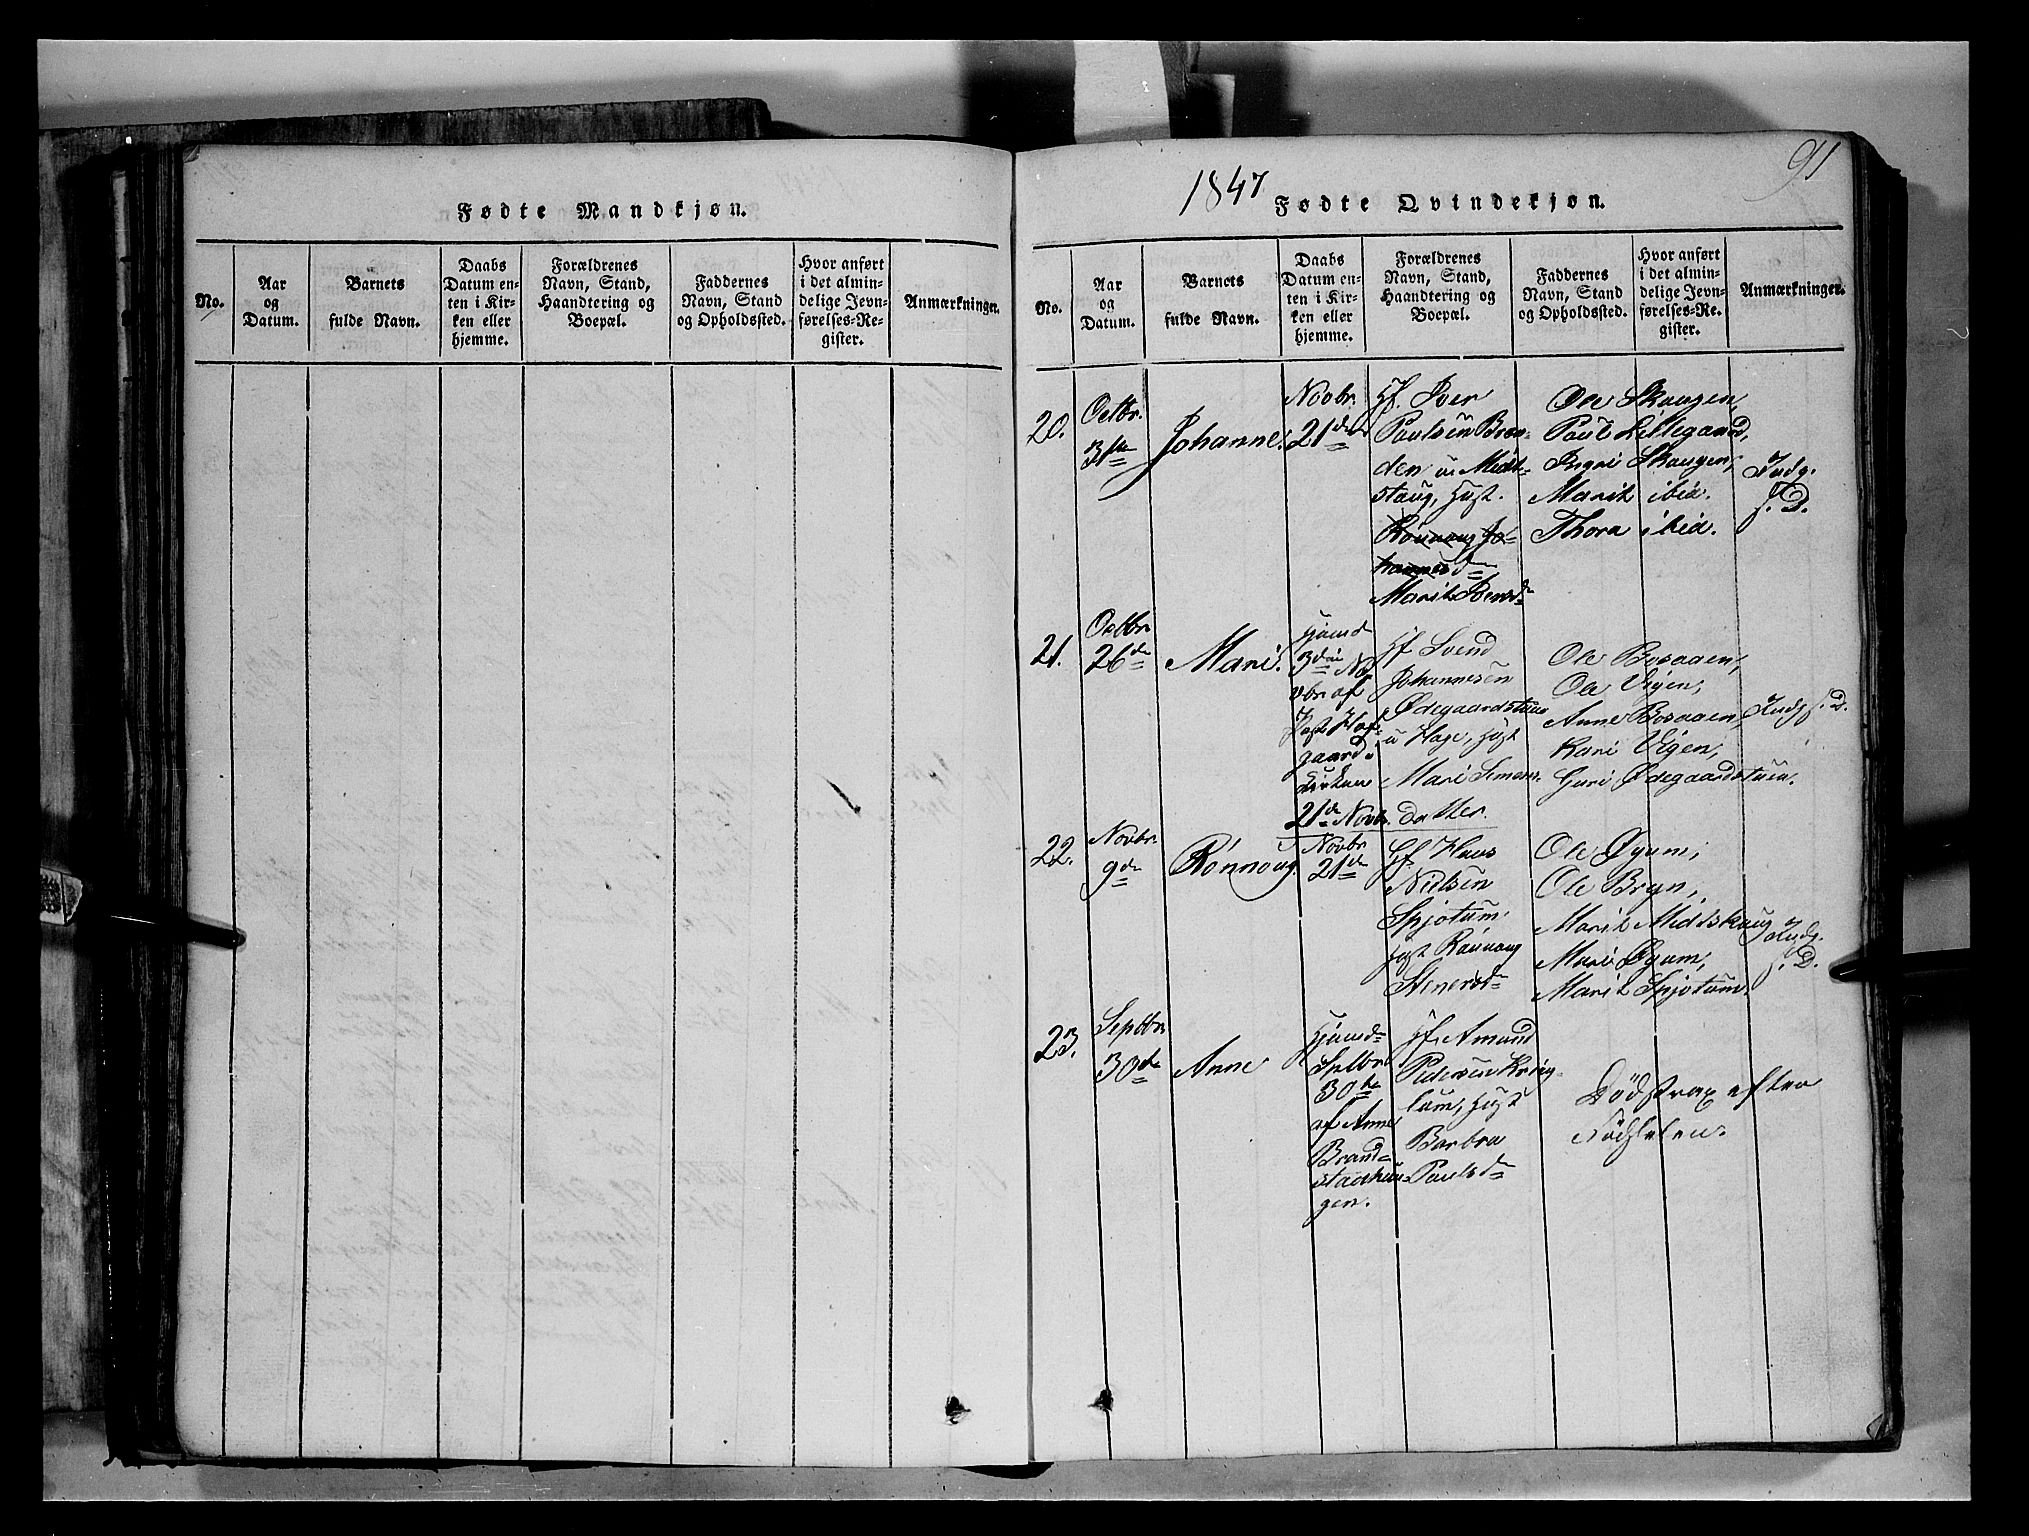 Fødte Mandkjøn.
No.
Aar
og
Datum.
Barnets
fulde Navn.
Daabs
Datum en-
ten i Kir-
ken eller
hjemme.
Forældrenes
Navn, Stand,
Haandtering og
Boepæl.
Faddernes
Navn, Stand
og Opholdssted.
Hvor anført
i det almin-
delige Jevn-
førelses-Re-
gister.
Anmærkninger.
91
1847
Fødte Qvindekjøn.
No.
Aar
og
Datum.
Barnets
fulde Navn.
Daabs
Datum en-
ten i Kir-
ken eller
hjemme.
Forældrenes
Navn, Stand,
Haandtering og
Boepæl.
Faddernes
Navn, Stand
og Opholdssted.
Hvor anført
i det almin-
delige Jevn-
førelses-Re-
gister.
Anmærkninger.
20.
Octbr.
31te
Johanne.
Novbr.
21de
Hf. Iver
Poulsen Bræn-
den u. Midt-
skoug, Hust.
Rønnoug Jo-
hannesd
Marit Iversd
Ole Skougen,
Poul Lillegaard,
Ingri Skougen,
Marit ibid.
Thora ibid.
Indg.
f. D.
21.
Octbr.
26de
Mari.
Hjemd
3die No-
vbr. af
gaard.
Kirken
21de Novbr.
Hf Svend
Johannesen
Ødegaardstuen
u Hage, Hust
Mari Simens-
datter.
Ole Bosaaen,
Ole Vigen,
Anne Bosaaen,
Kari Vigen,
Guri Ødegaardstuen.
Indg. f. D.
22.
Novbr.
9de
Rønnoug.
Novbr
21de
Hf. Hans
Nielsen
Spjotum.
Hust Rønnoug
Stenersd
Ole Øyum,
Ole Bryn,
Marit Midtskoug
Mari Øyum,
Marit Spjotum.
Indg.
f. D.
23.
Septbr
30te
Anne
Hjemd
Sptbr
30te
af Anne
Brand-
stadhau-
gen.
Hf. Amund
Pedersen Kring-
lum, Hust
Barbra
Poulsd
Død strax efter
Fødselen.